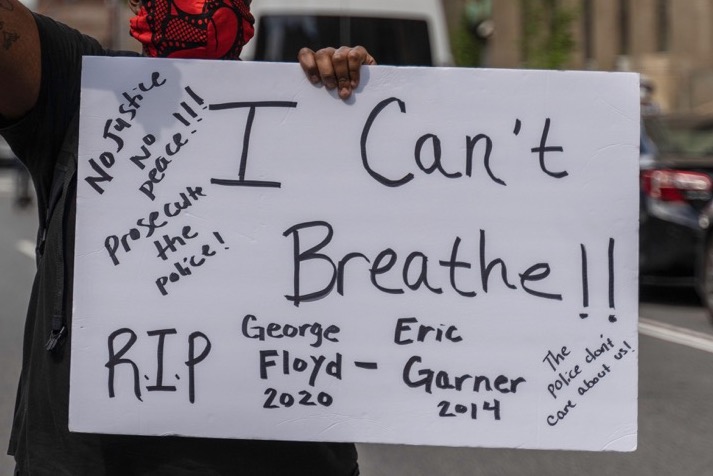 No Justice
No
peace!!!
Prosecute
the
police!
I Can't
Breathe!!
R.I.P
George
Floyd –
2020
Eric
Garner
2014
The
police don't
care about us!